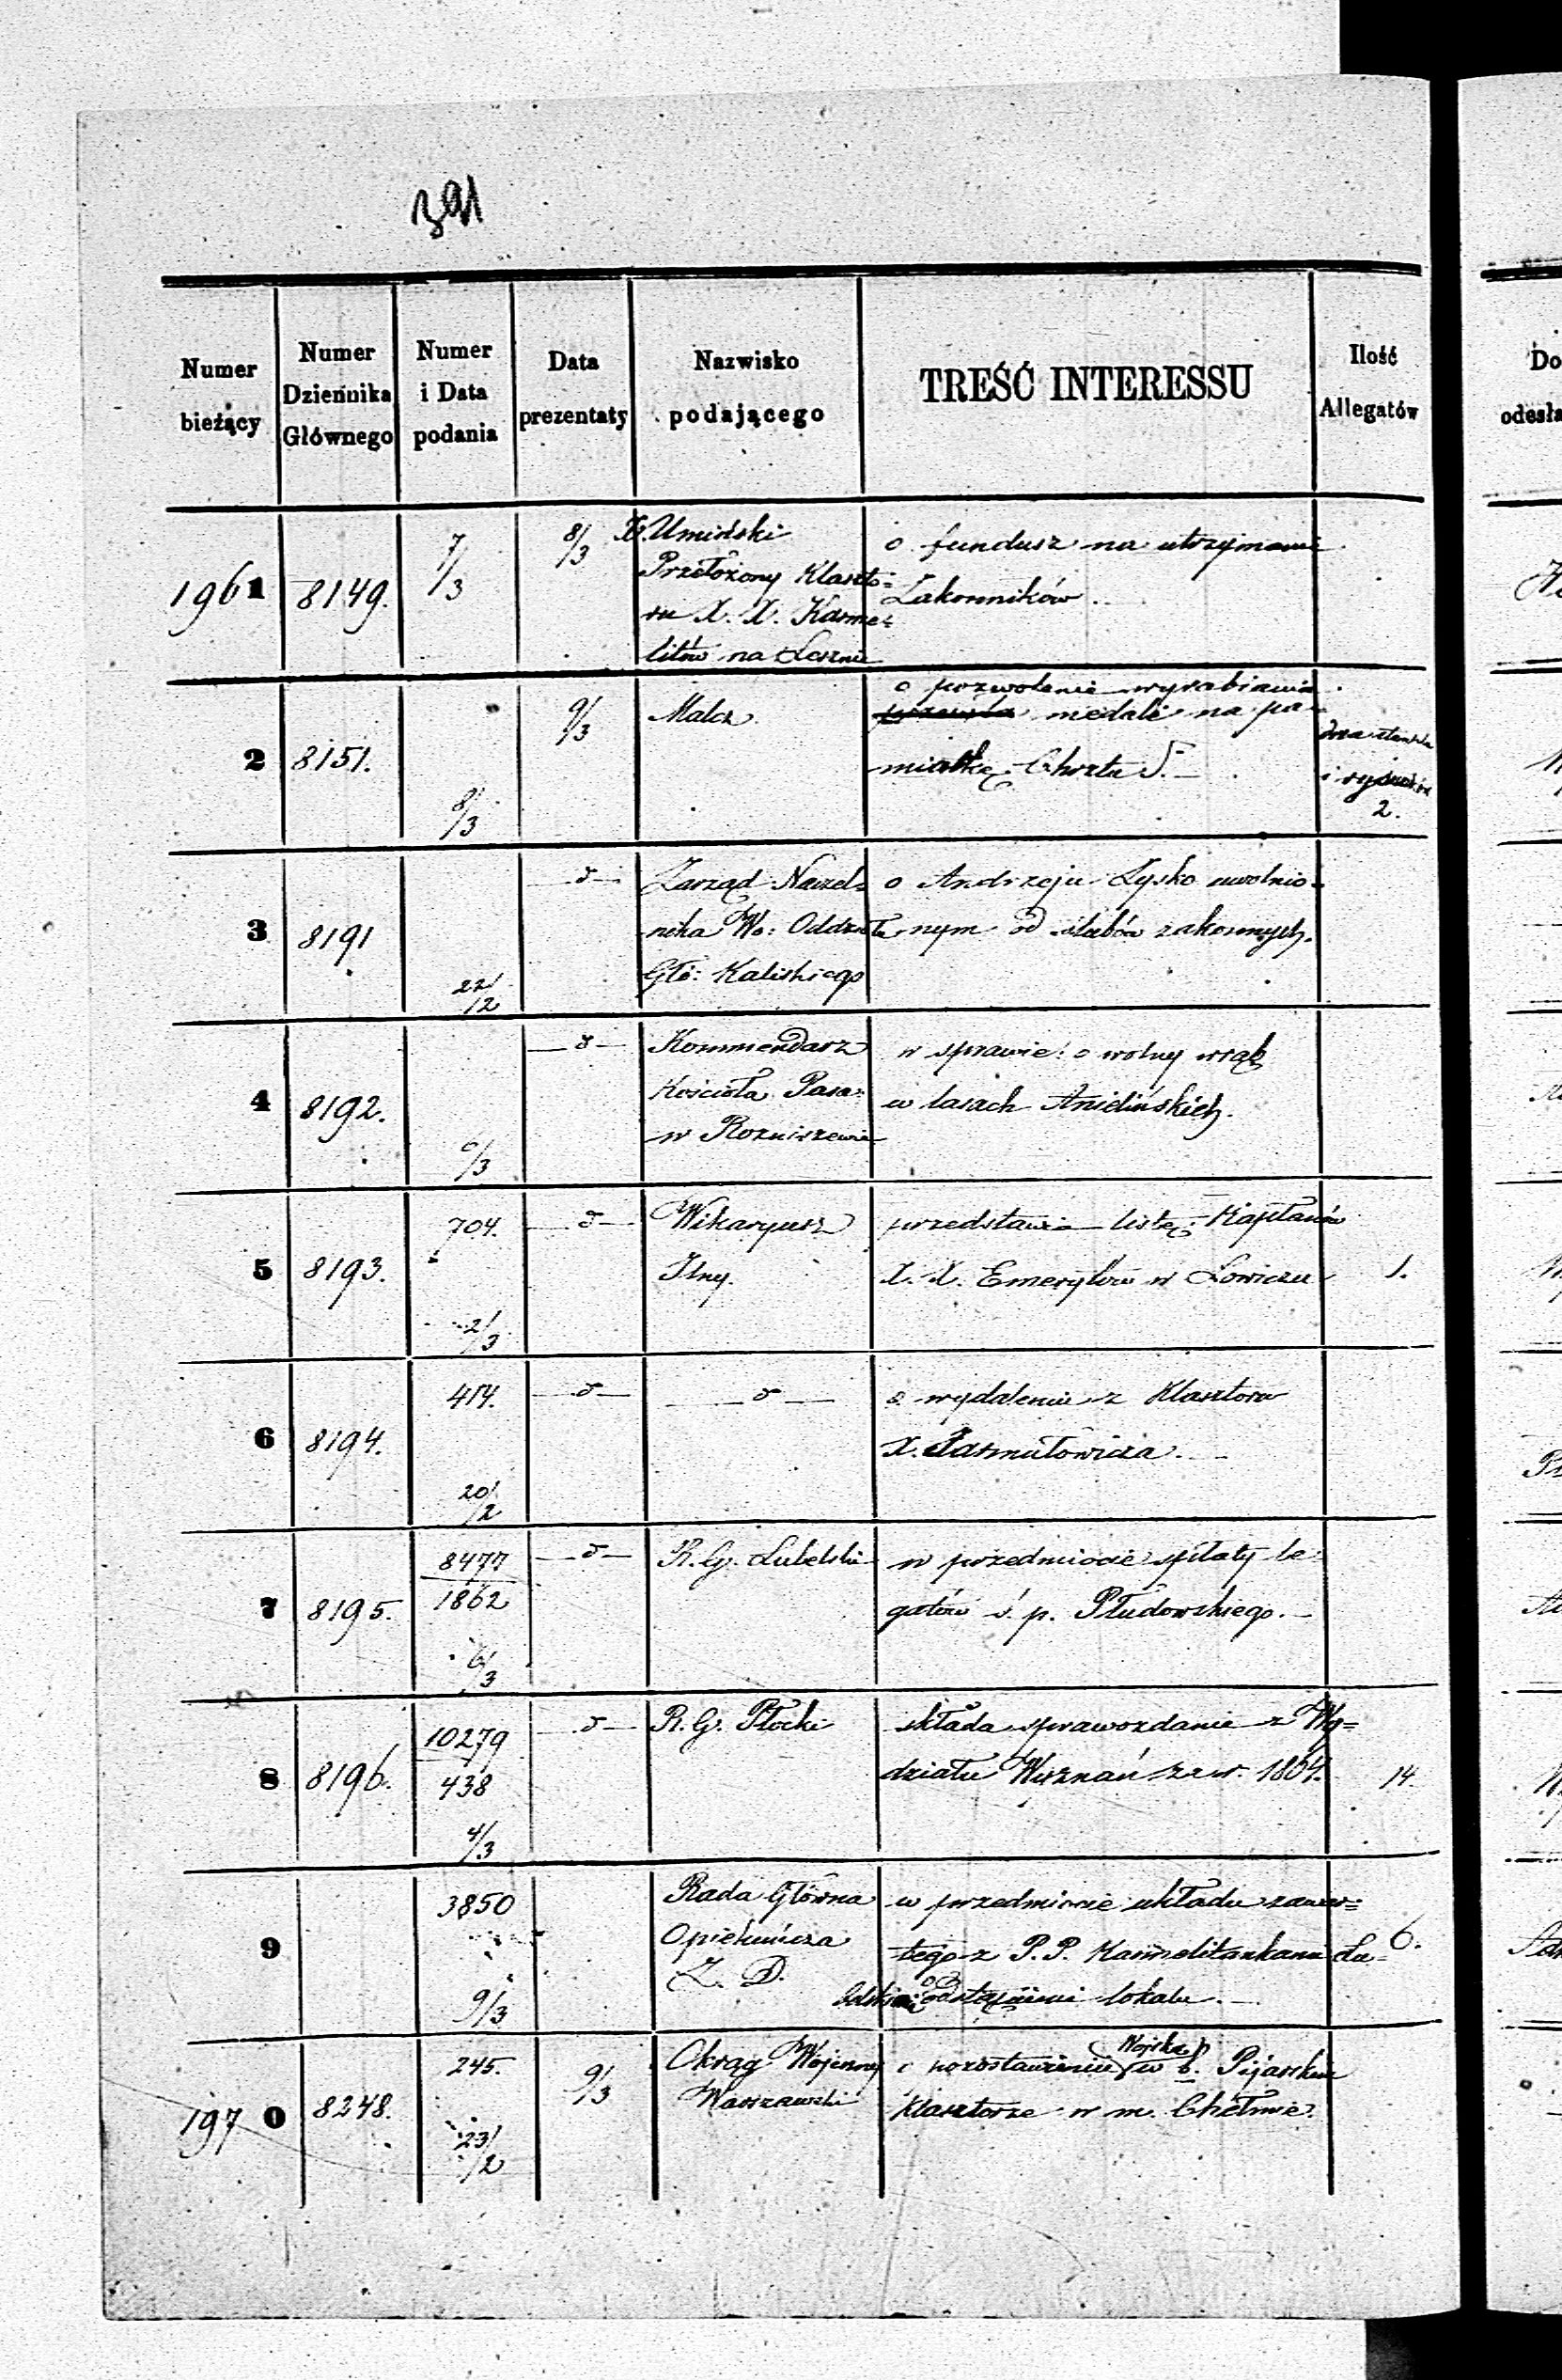 391
Numer bieżący
Numer Dziennika Głównego
Numer i Data podania
Data prezentaty
Nazwisko podającego
TREŚĆ INTERESSU
Ilość Allegatów
Do
odesła
1961
8149.
7/3
8/3
X. Umiński
Przełożony Klaszto=
ru X. X. Karme=
litów na Lesznie
o fundusz na utrzymanie
Zakonników.
2
8151.
8/3
9/3
Malcz
o pozwolenie wyrabiania
medali na pa=
miątkę Chrztu S.
2.
3
8191
22/2
d
Zarząd Naczel=
nika Wo: Oddziału
Głó: Kaliskiego
o Andrzeju Łysko uwolnio=
nym od ślubów zakonnych.
4
8192.
/3
d
Kommendarz
Kościoła Para:
w Rozniszewie
w sprawie o wolny wrąb
w lasach Anielińskich.
5
8193.
704.
2/3
d
Wikaryusz
Jlny.
przedstawia listę Kapłanów
X. X. Emerytów w Łowiczu
1.
6
8194.
414.
20/2
d
d
o wydalenie z Klasztoru
X.
7
8195.
8477
1862
6/3
d
R. G. Lubelski
w przedmiocie spłaty le
gatów ś. p. Płudowskiego.
8
8196.
10279
438
4/3
d
R. G. Płocki
składa sprawozdanie z Wy=
działu Wyznań za r. 1864.
14
9
3850
9/3
Rada Główna
Opiekuńcza
Z. D.
w przedmiocie układu zawar=
tego z P. P. Karmelitankami Lu=
belskiemi o odstąpienie lokalu.
6.
1970
8248.
245.
23/2
9/3
Okrąg Wojenny
Warszawski
o pozostawienie Wojska w b. Pijarskim
Klasztorze w m. Chełmie.